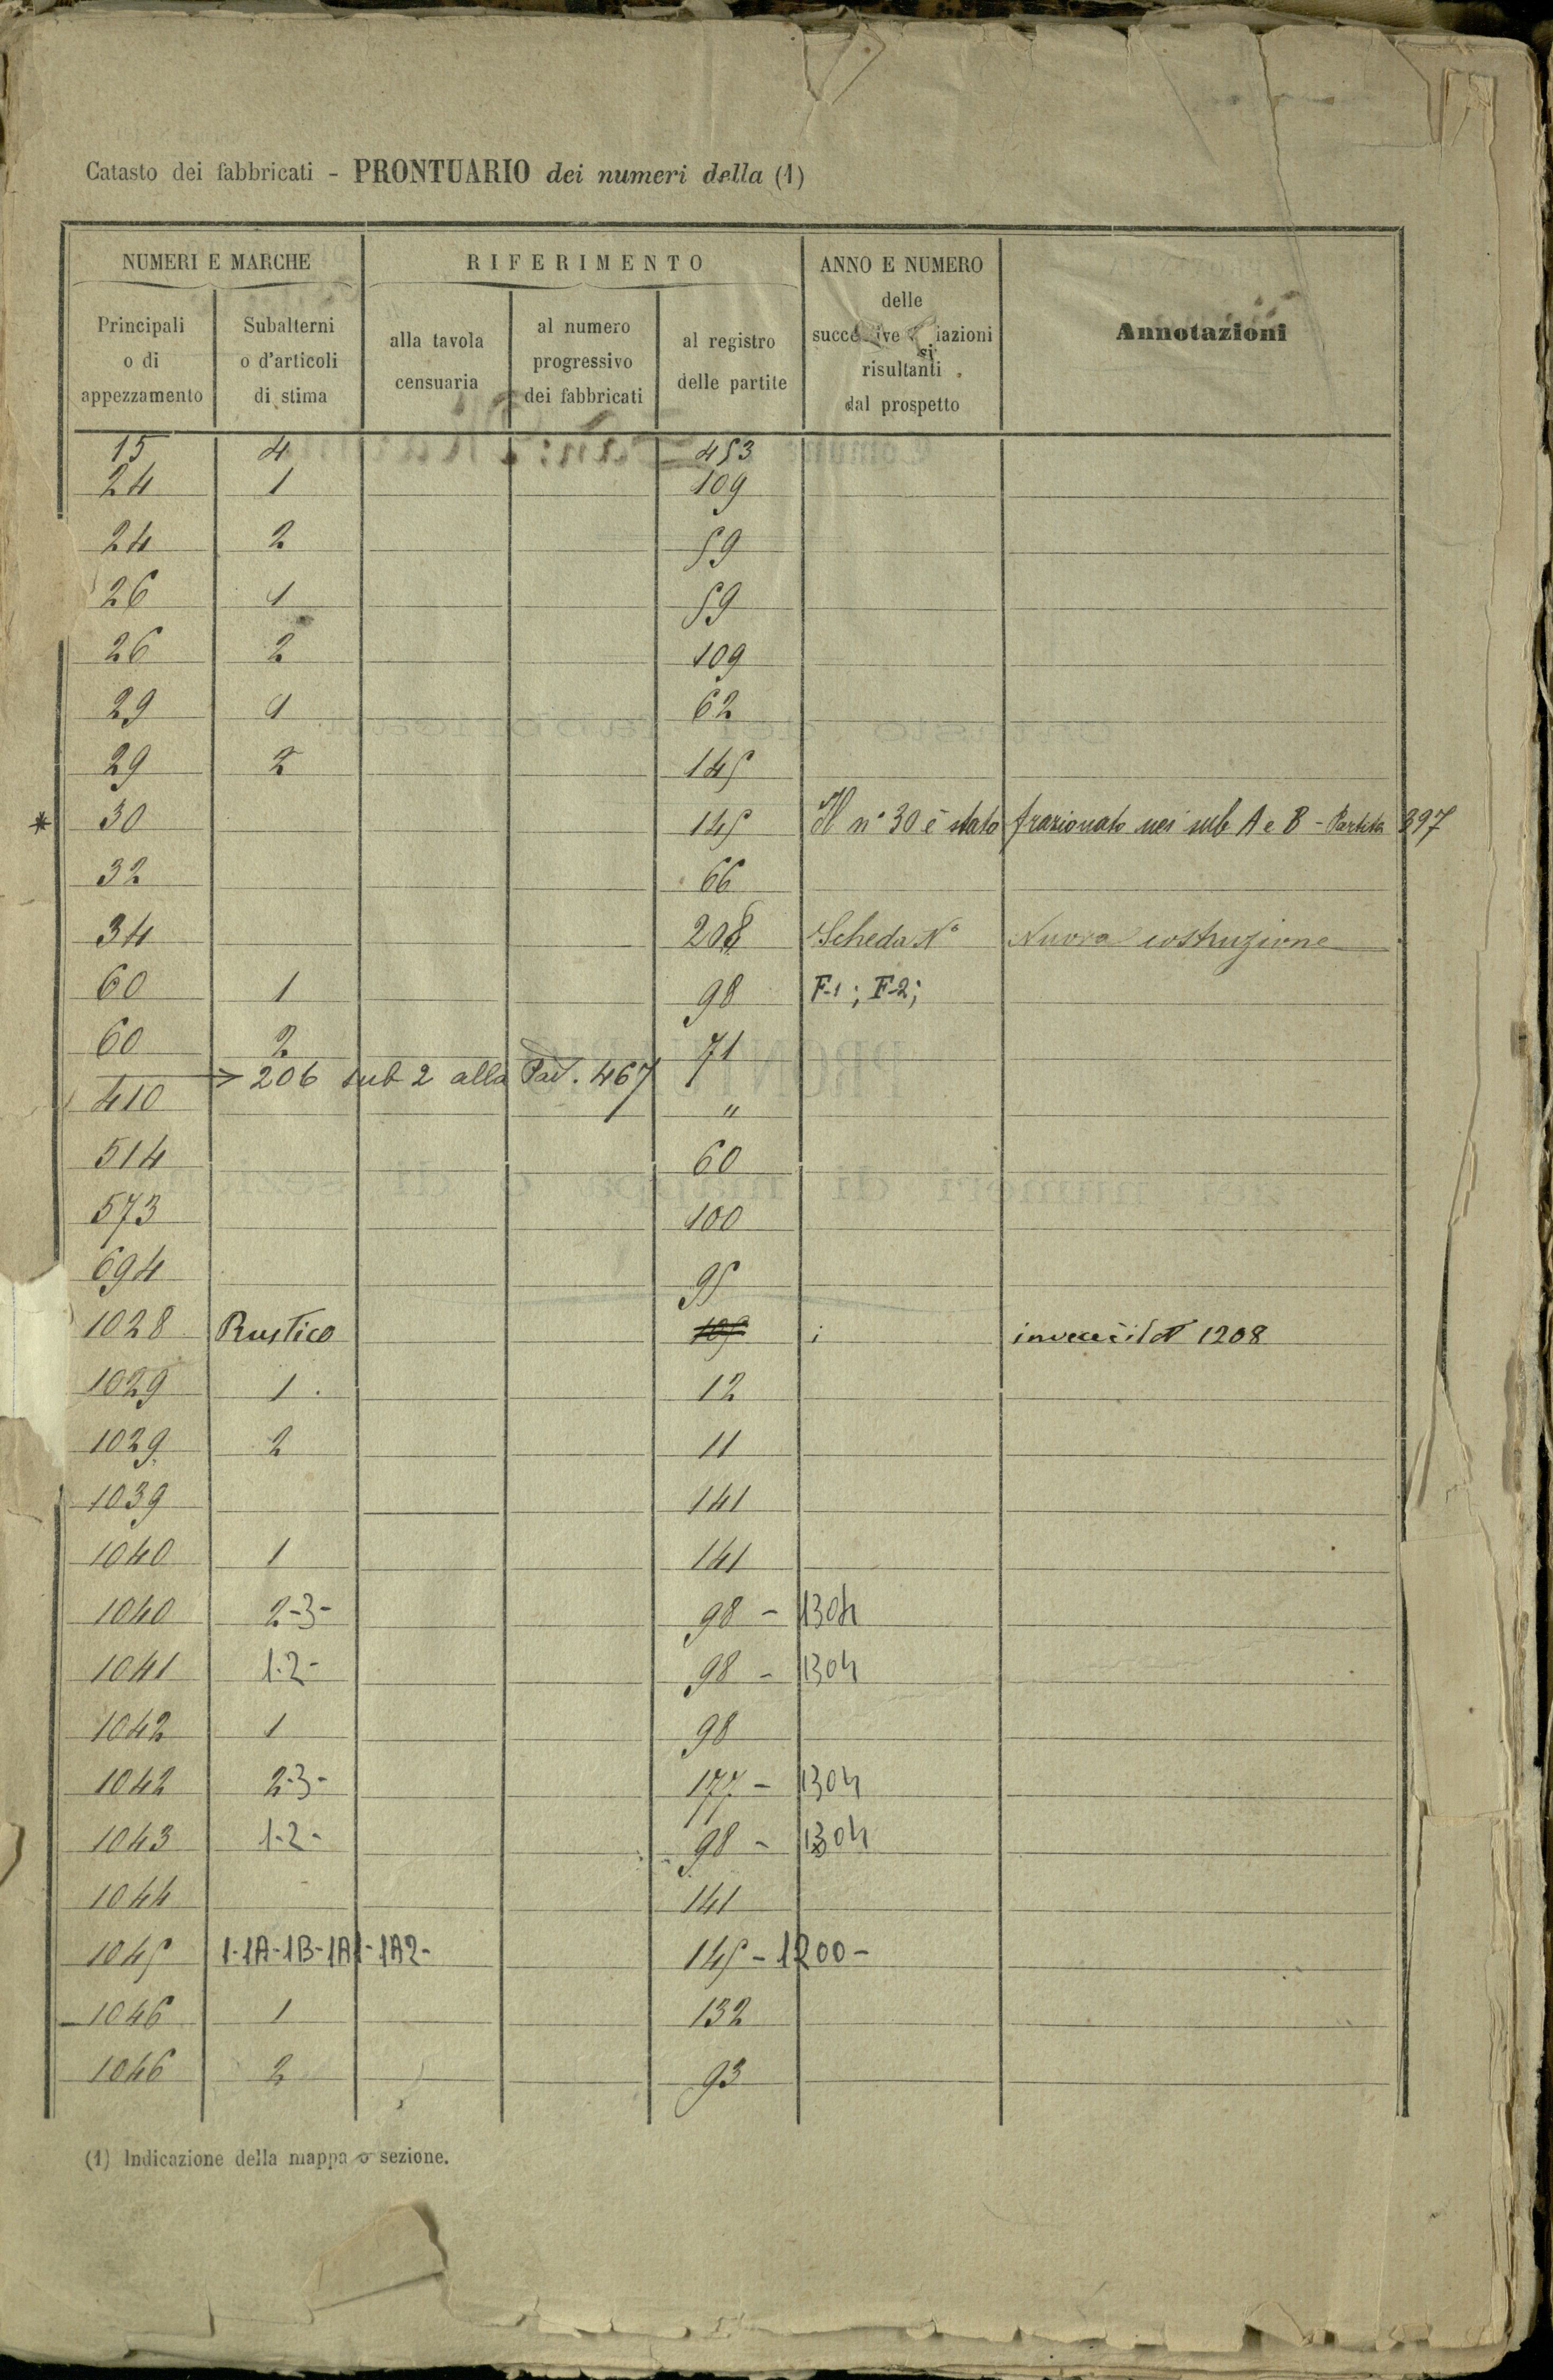 Catasto dei fabbricati - PRONTUARIO dei numeri della (1)
NUMERI E MARCHE RIFERIMENTO ANNO E NUMERO delle successive iazioni risultanti dal prospetto Annotazioni
Principali o di appezzamento Subalterni o d'articoli di stima alla tavola censuaria al numero progressivo dei fabbricati al registro delle partite
15 4 453
24 1 109
24 2 59
26 1 59
26 2 109
29 1 62
29 2 145
* 30 145 Il n° 30 è stato frazionato nei sub A e B - Partita 397
32 66
34 208 Scheda N° Nuova costruzione
60 1 98 F-1; F-2;
60 2 71
→ 206 sub 2 alla Par. 467
410 "
514 60
573 100
694 95
1028 Rustico 105 i invece è il N 1208
1029 1 12
1029 2 11
1039 141
1040 1 141
1040 2-3- 98 - 1304
1041 1-2- 98 - 1304
1042 1 98
1042 2-3- 177 - 1304
1043 1-2- 98 - 1304
1044 141
1045 1-1A-1B-1A1-1A2- 145 - 1200 -
1046 1 132
1046 2 93
(1) Indicazione della mappa o sezione.